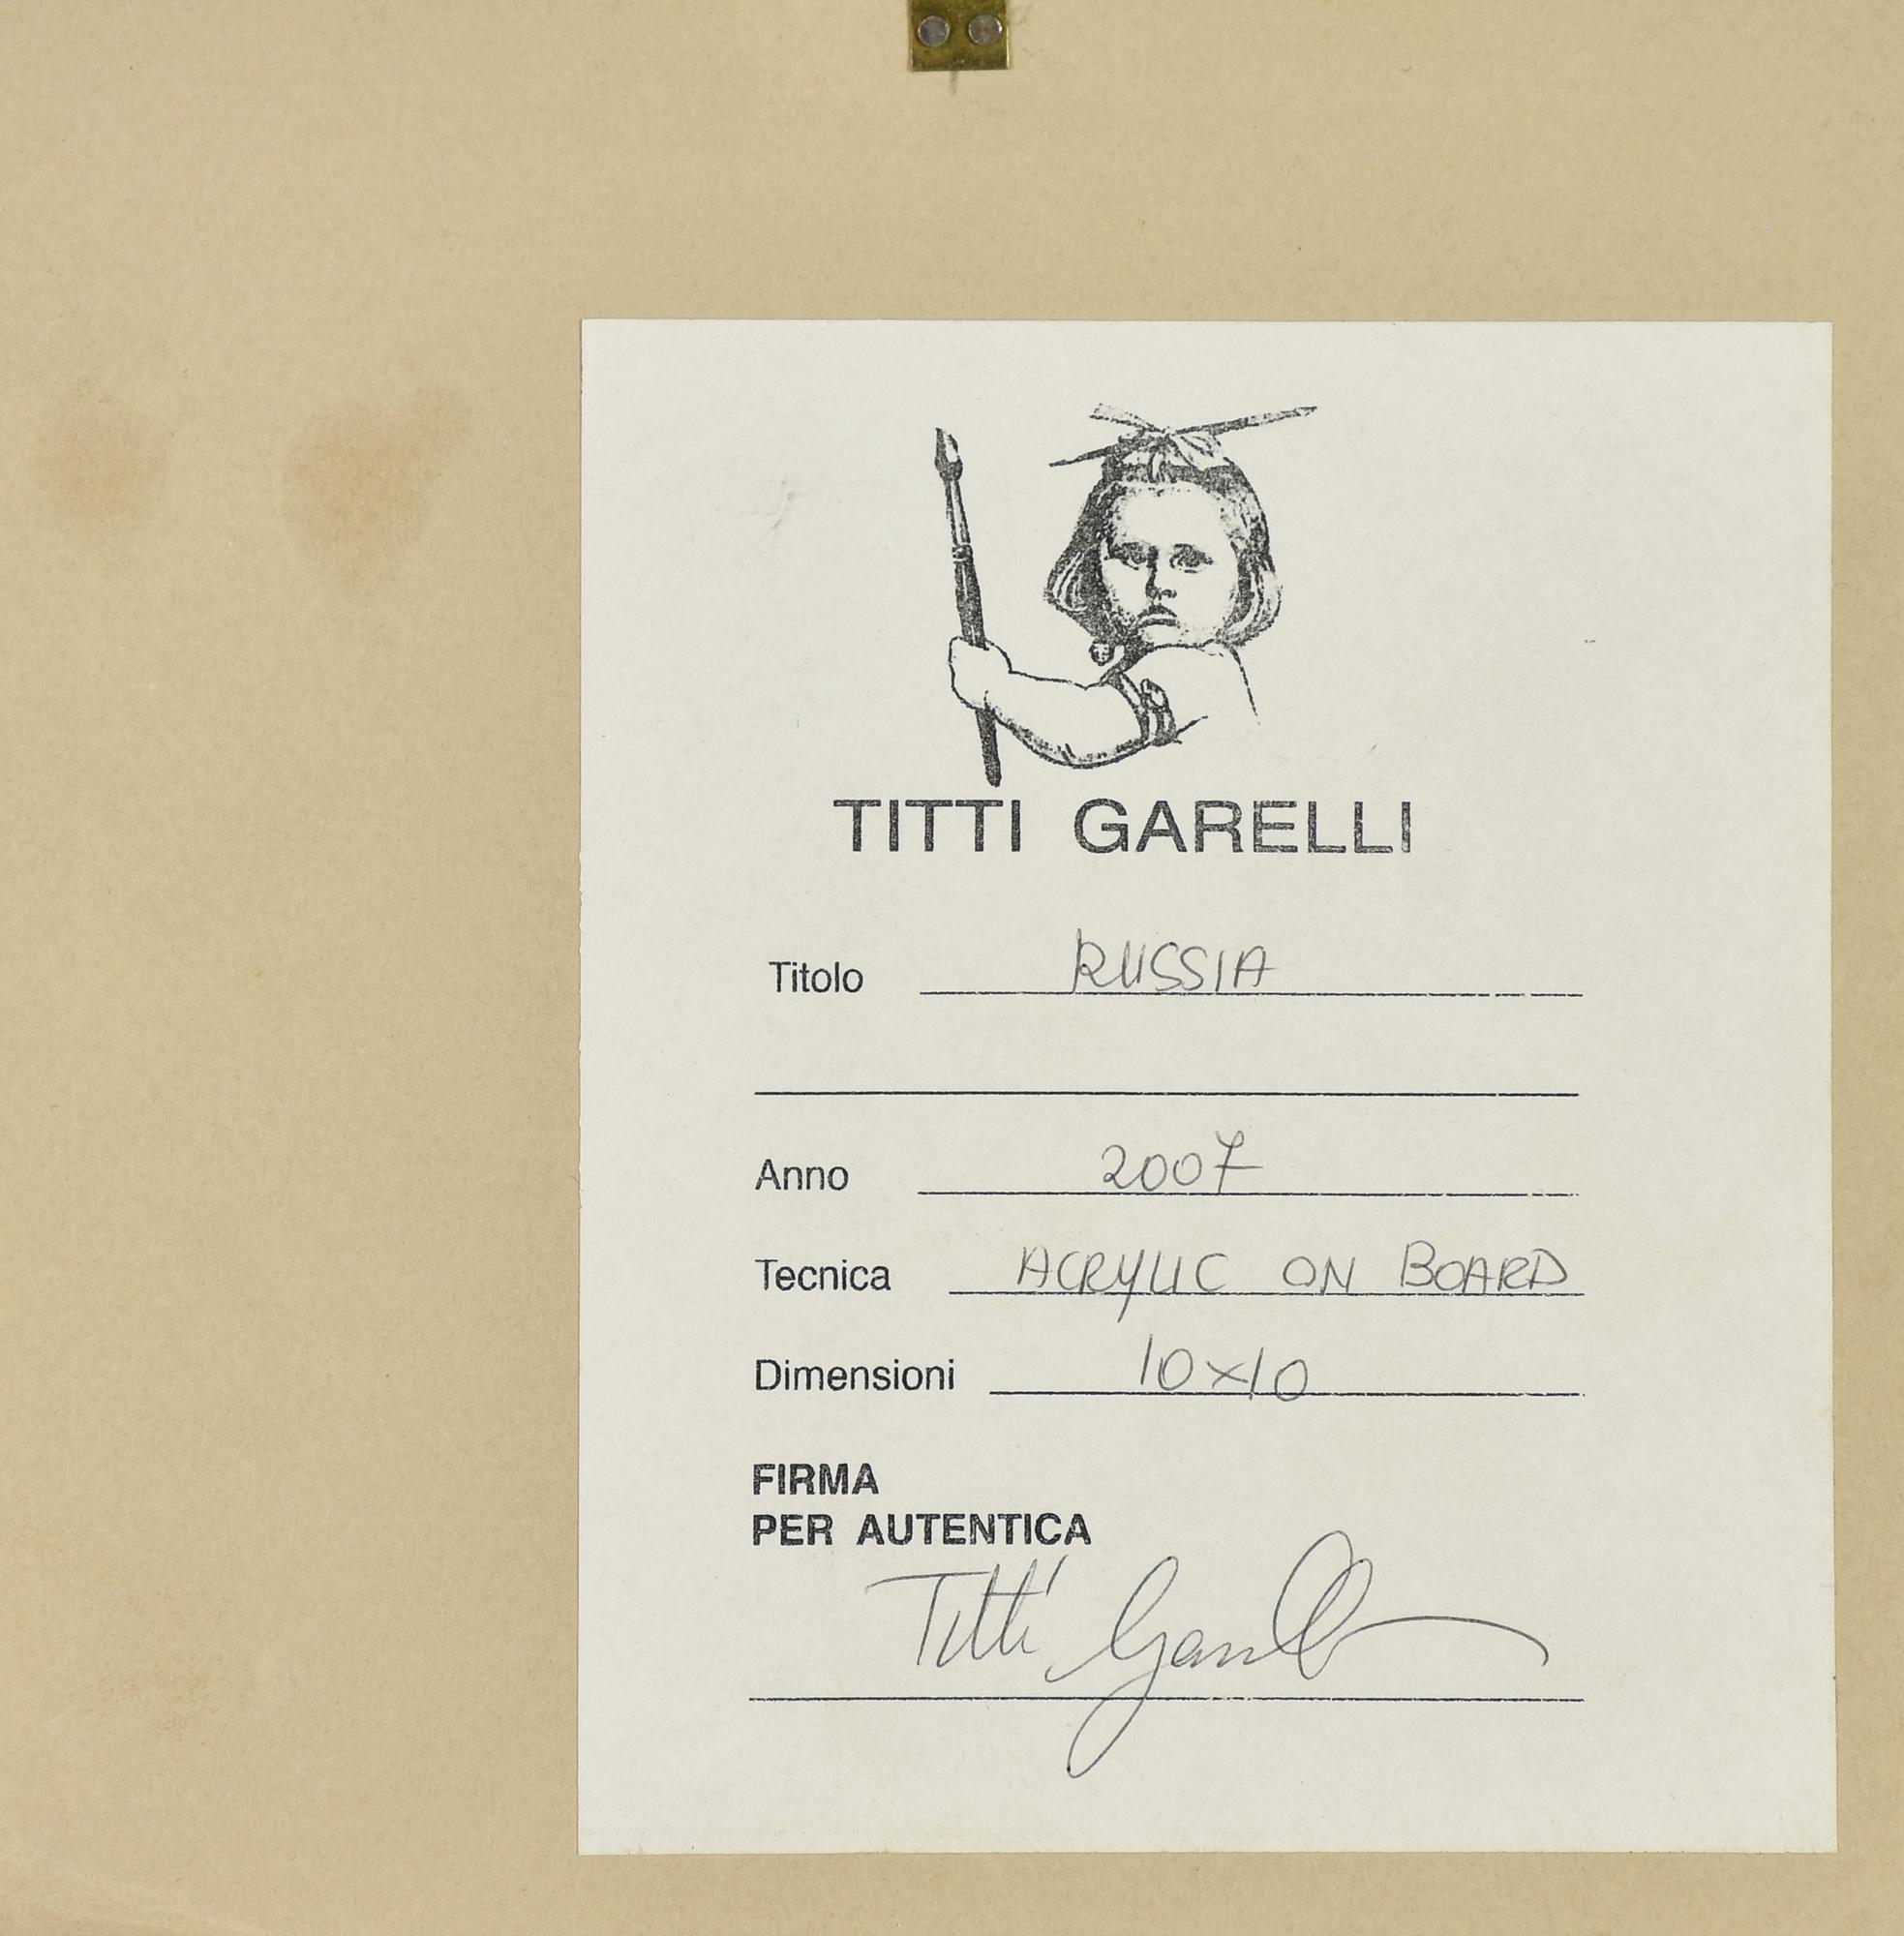 TITTI GARELLI
Titolo RUSSIA
Anno 2007
Tecnica ACRYLIC ON BOARD
Dimensioni 10x10
FIRMA
PER AUTENTICA
Titti Garelli